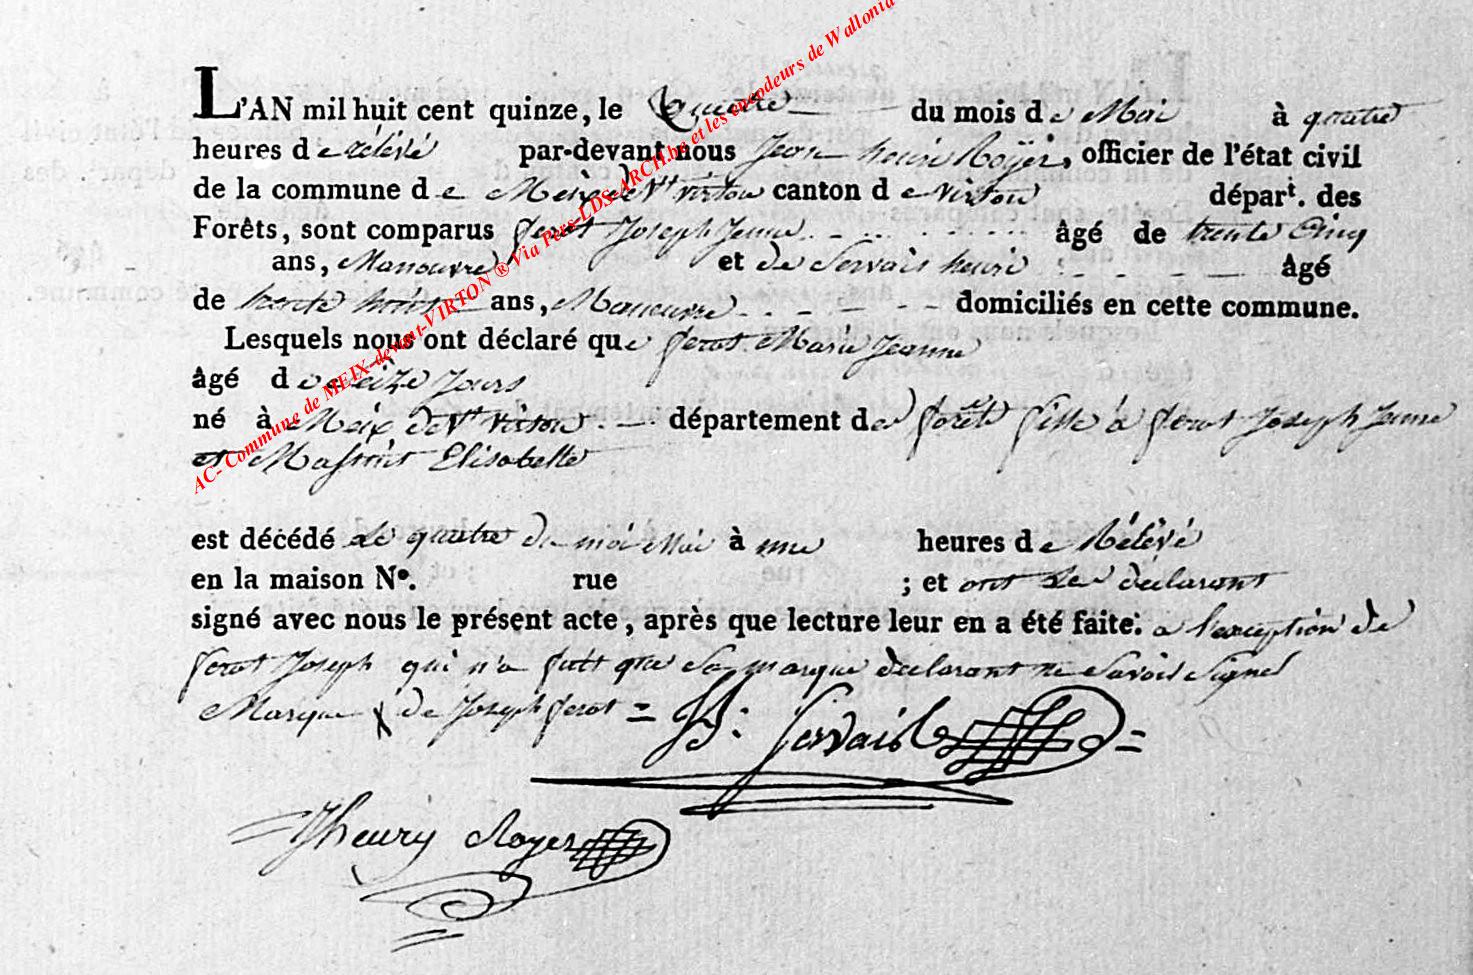 L'AN mil huit cent quinze, le quatre du mois de Mai à quatre
heures de rélévé par-devant nous Jean henri Royer, officier de l'état civil
de la commune de Meix devt virton canton de virton départ. des
Forêts, sont comparus ferot Joseph Jeune âgé de trente Cinq
ans, Manouvre et de Servais henri âgé
de trente ans, Manouvre domiciliés en cette commune.
Lesquels nous ont déclaré que ferot Marie Jeanne
âgé de seize Jours
né à Meix devt virton département des forêt fille à ferot Joseph Jeune
et Massint Elisabette
est décédé le quatre du moi Mai à une heures de Rélévé
en la maison No. rue ; et ont les déclarant
signé avec nous le présent acte, après que lecture leur en a été faite. a l'exception de
ferot Joseph qui n'a fait que sa marque déclarant ne savoir signer
Marque X de Joseph ferot = H: Servais =
Jhenry Royer
AC- Commune de MEIX-devant-VIRTON ® Via Pers-LDS-ARCH.be et les encodeurs de Wallonia